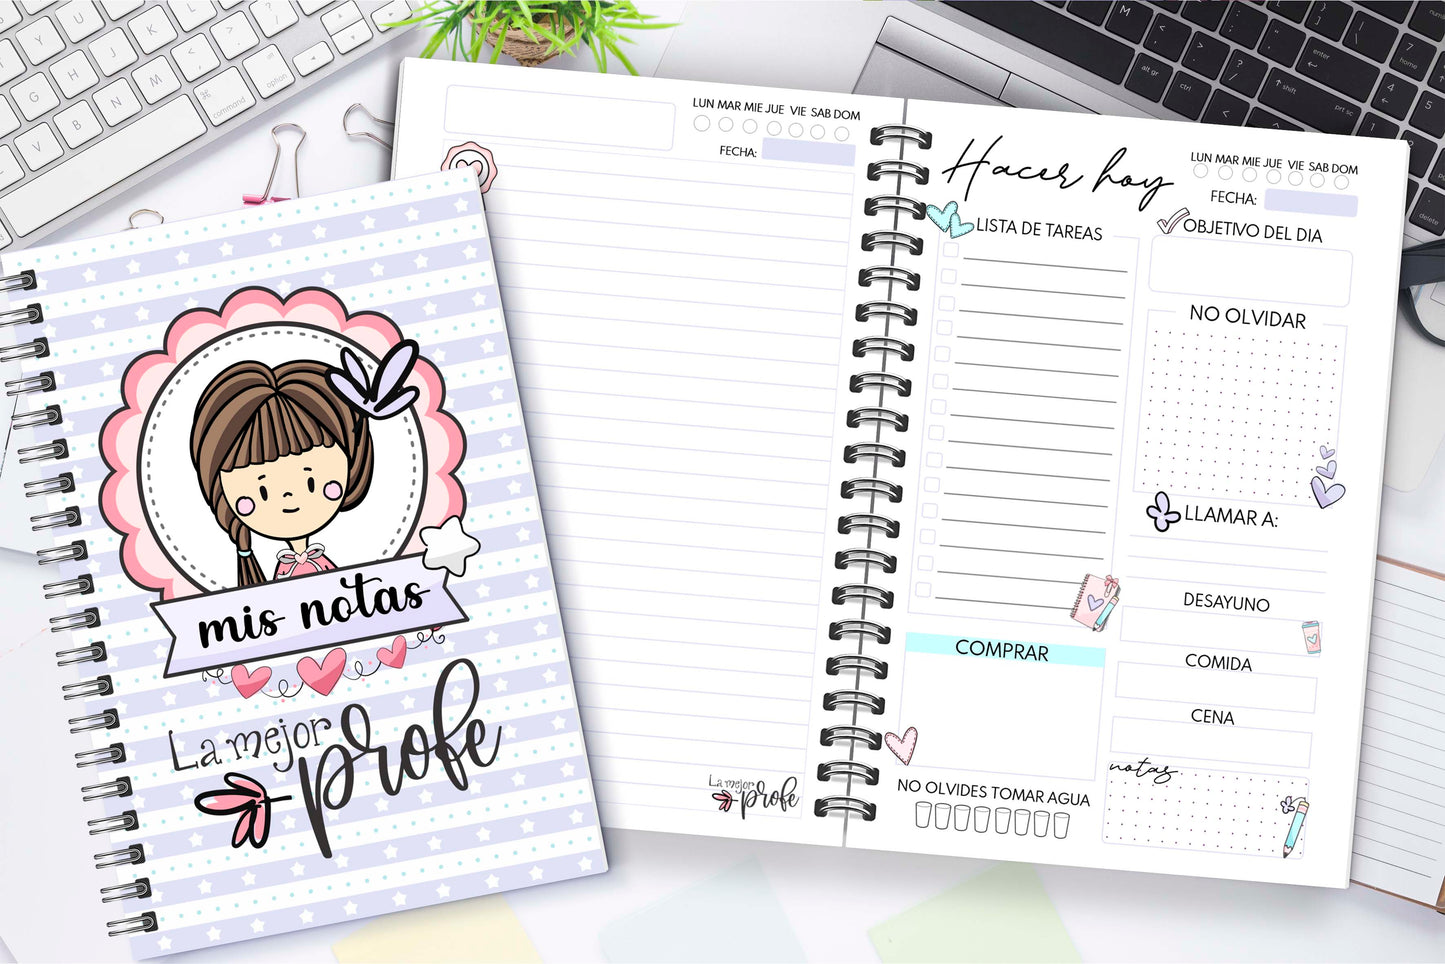 mis notas
La mejor
profe
LUN MAR MIE JUE VIE SAB DOM
FECHA:
La mejor
profe
Hacer hoy
LUN MAR MIE JUE VIE SAB DOM
FECHA:
LISTA DE TAREAS
OBJETIVO DEL DIA
NO OLVIDAR
LLAMAR A:
DESAYUNO
COMIDA
CENA
COMPRAR
notas
NO OLVIDES TOMAR AGUA
command
option
alt gr
ctrl
enter
shift
prt sc
home
delete